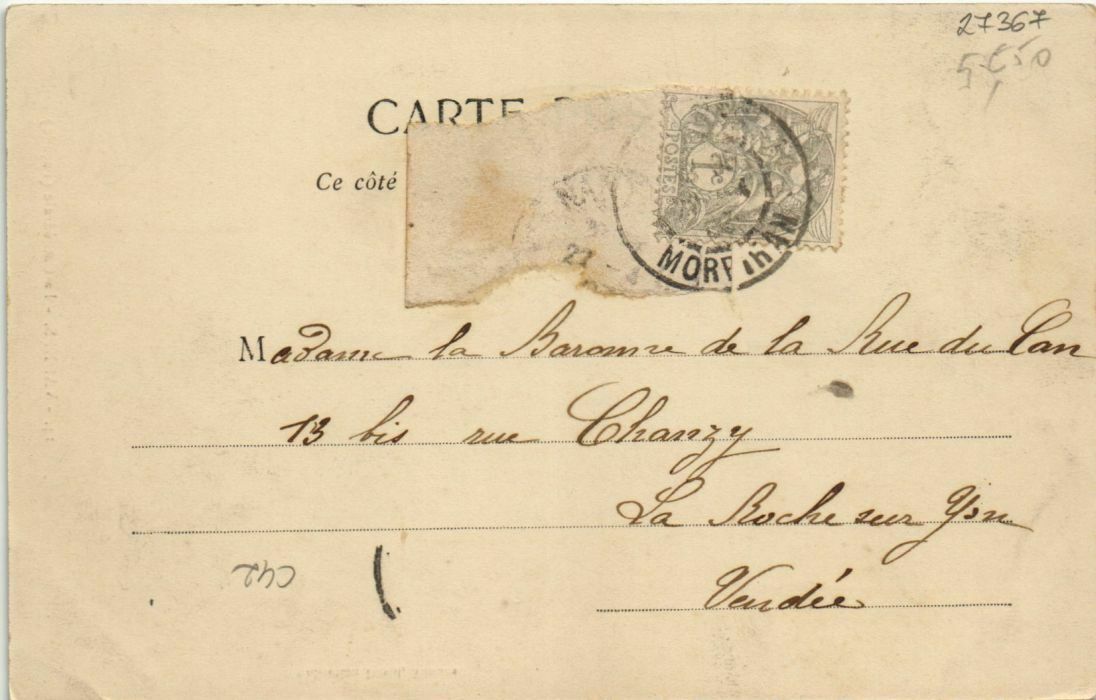 27367
5€50
CARTE
Ce côté
POSTES
1
MORBIHAN
27
Madame la Baronne de la Rue du Can
13 bis rue Chanzy
La Roche sur Yon
Vendée
C42